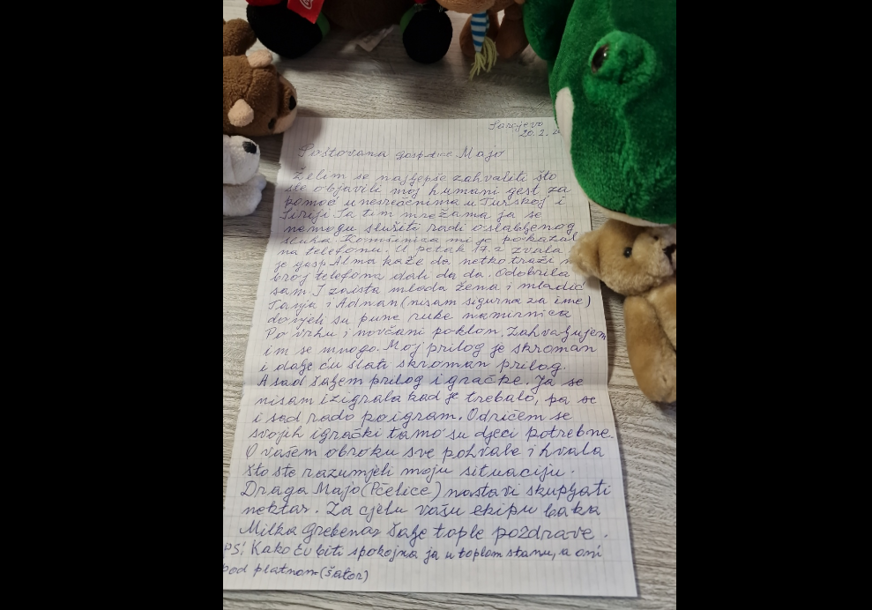 Sarajevo
20.2.
Poštovana gospođice Majo
Želim se najljepše zahvaliti što
ste objavili moj humani gest za
pomoć unesrećenima u Turskoj i
Siriji Ta tim mrežama ja se
nemogu služiti radi oslabljenog
sluha Komšinica mi je pokazala
na telefonu. U petak 17.2. zvala
je gosp Alma kaže da netko traži
broj telefona dali da da. Odobrila
sam. I zaista mlada žena i mladić
Tanja i Adnan (nisam sigurna za ime)
donjeli su pune ruke namirnica
Po vrhu i novčani poklon. Zahvaljujem
im se mnogo. Moj prilog je skroman
i dalje ću slati skroman prilog.
A sad šaljem prilog i igračke. Ja se
nisam izigrala kad je trebalo, pa se
i sad rado poigram. Odričem se
svojih igrački tamo su djeci potrebne.
O vašem obroku sve pohvale i hvala
što ste razumjeli moju situaciju.
Draga Majo (Pčelice) nastavi skupljati
nektar. Za cjelu vašu ekipu baka
Milka Grebenar šalje tople pozdrave.
PS! Kako ću biti spokojna ja u toplem stanu, a oni
pod platnom (šator)